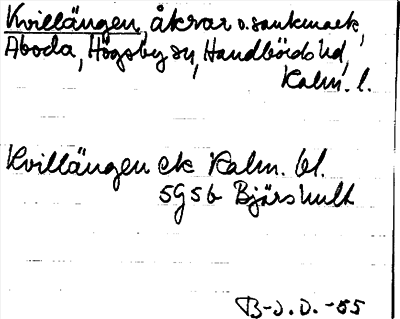 Kvillängen, åkrar o. sankmark,
Aboda, Högsby sn, Handbörds hd,
Kalm. l.
Kvillängen ek Kalm. bl.
5G5b Bjärshult
B-J. O. -55